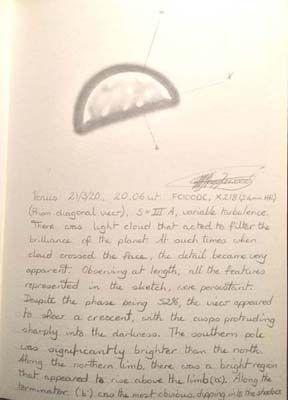 Venus 21/3/20, 20.06 ut FC100DC, X218
(From diagonal view), S=III A, variable turbulence.
There was light cloud that acted to filter the
brilliance of the planet. At such times when
cloud crossed the face, the detail became very
apparent. Observing at length, all the features
represented in the sketch, were persistant.
Despite the phase being 52%, the view appeared
to show a crescent, with the cusps protruding
sharply into the darkness. The southern pole
was significantly brighter than the north.
Along the northern limb, there was a bright region
that appeared to rise above the limb (α). Along the
terminator ('b') was the most obvious, dipping into the shadows